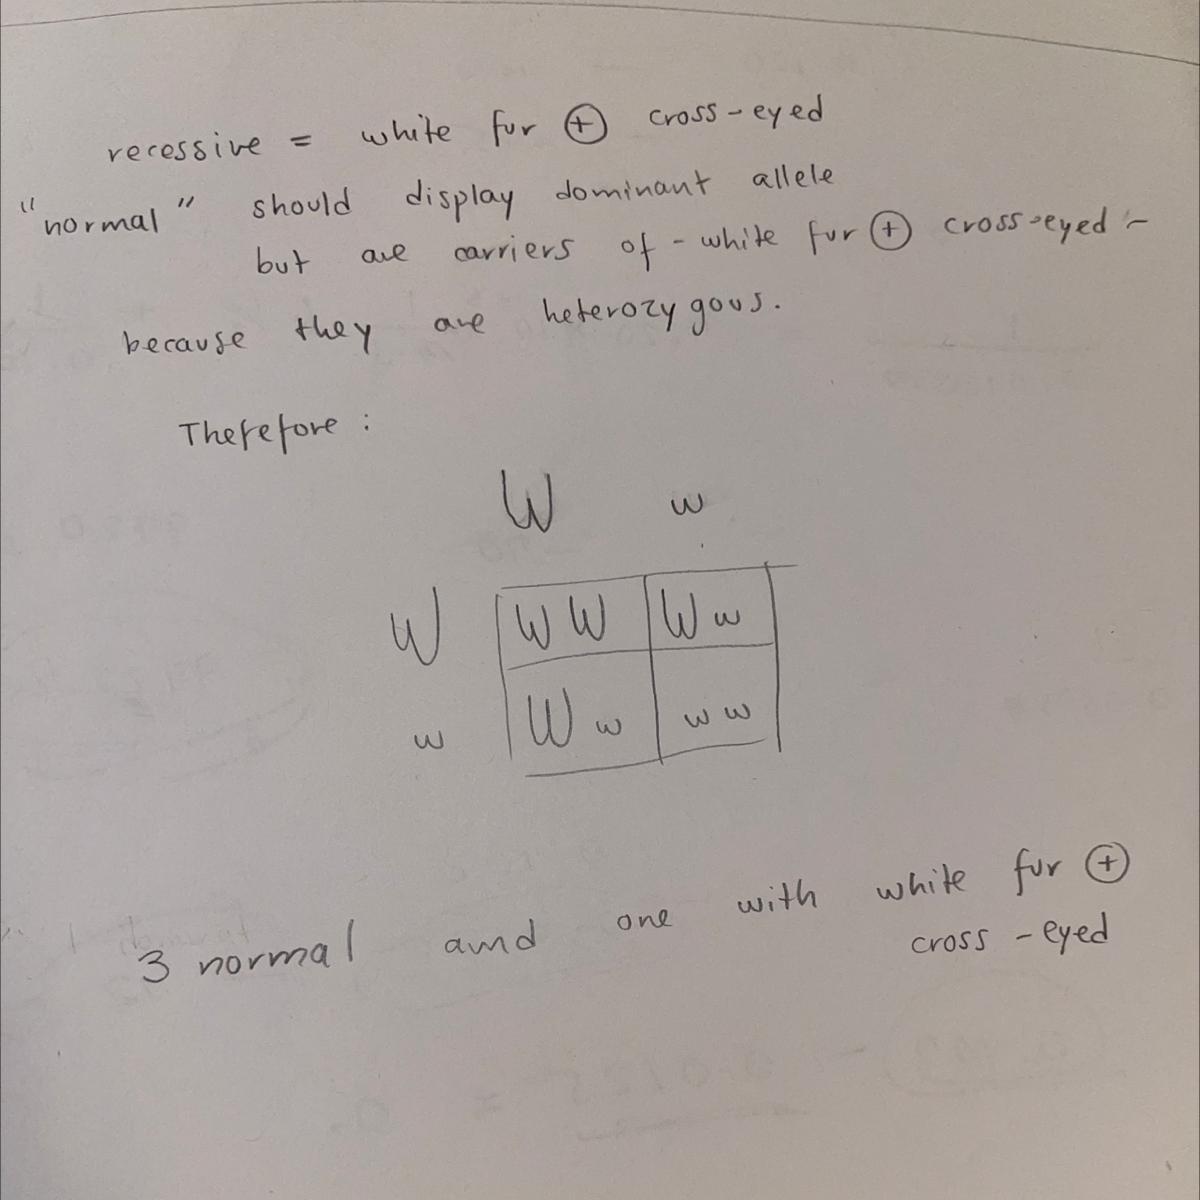 recessive = white fur ⊕ cross-eyed
"normal" should display dominant allele
but are carriers of - white fur ⊕ cross-eyed -
because they are heterozygous.
Therefore :
W w
W WW Ww
w Ww ww
3 normal amd one with white fur ⊕
cross-eyed